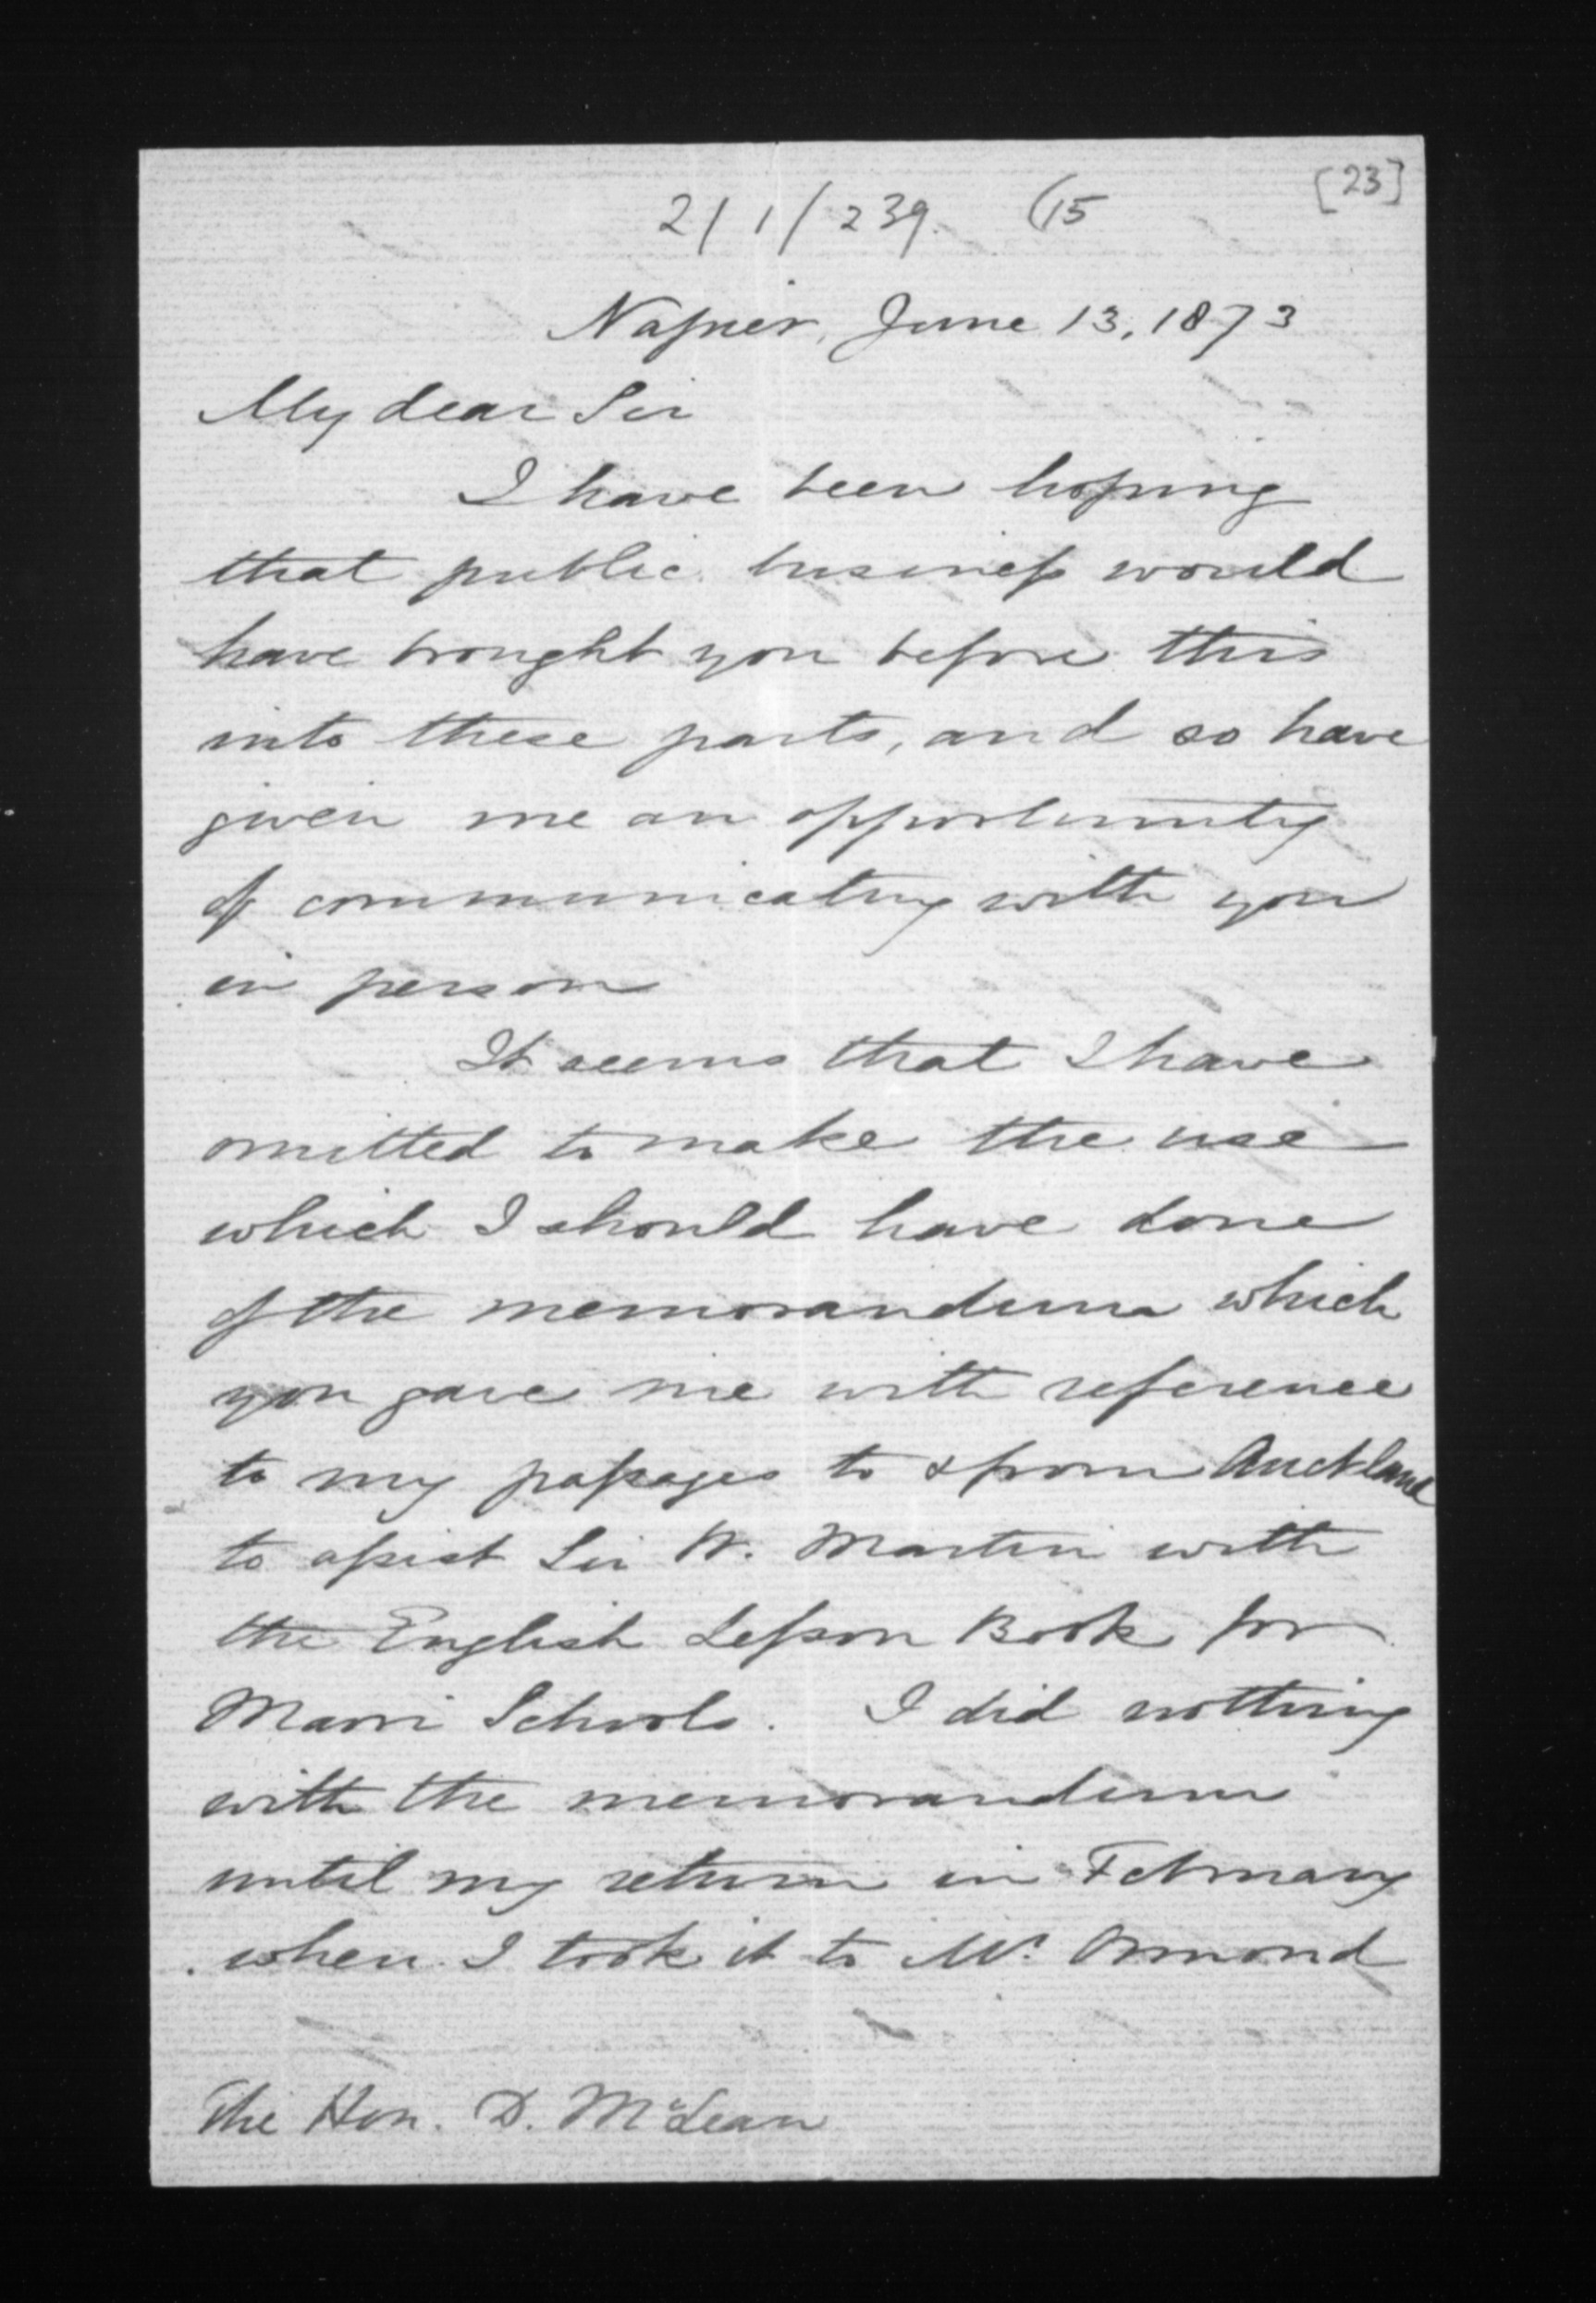 [23]
2/1/239. (15
Napier, June 13, 1873
My dear Sir
I have been hoping
that public business would
have brought you before this
into these parts, and so have
given me an opportunity
of communicating with you
in person
It seems that I have
omitted to make the use
which I should have done
of the memorandum which
you gave me with reference
to my passages to & from Auckland
to assist Sir W. Martin with
the English Lesson Book for
Maori Schools. I did nothing
with the memorandum
until my return in February
when I took it to Mr Ormond
The Hon. D. McLean